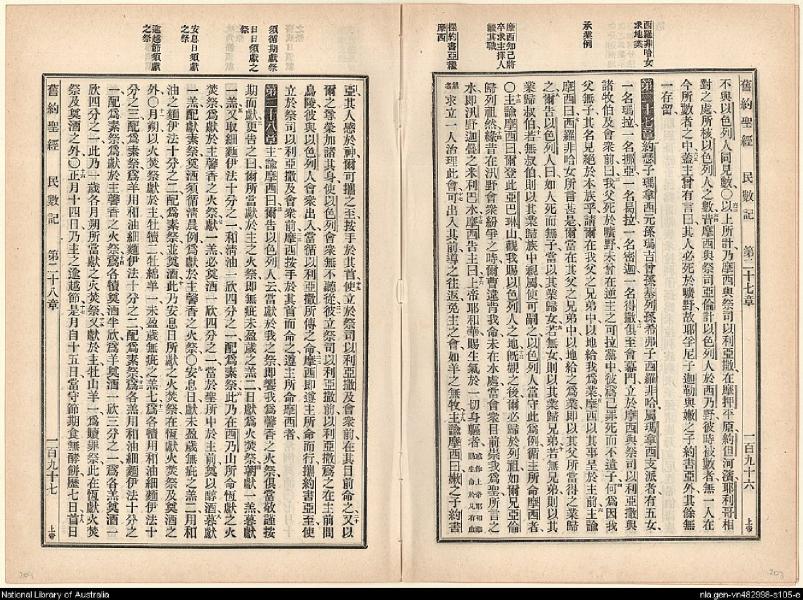 西羅非哈女
求地業
承業例
摩西知己將
卒求主擇人
繼其職
擇約書亞繼
摩西
舊約聖經 民數記 第二十七章 一百九十六 上帝
不與以色列人同見數○以上所計乃摩西與祭司以利亞撒在摩押平原約但河濱耶利哥相
對之處所核以色列人之數昔摩西與祭司亞倫計以色列人於西乃野彼時被數者無一人在
今所數者之中蓋主曾有言曰其人必死於曠野故耶孚尼子迦勒與嫩之子約書亞外其餘無
一存留
第二十七章約瑟子瑪拿西元孫瑪吉曾孫基列孫希弗子西羅非哈屬瑪拿西支派者有五女
一名瑪拉一名挪亞一名曷拉一名密迦一名得撒俱至會幕門立於摩西與祭司以利亞撒與
諸牧伯及會衆前曰我父死於曠野未曾在逆主之可拉黨中彼爲己罪而死不遺子何爲因我
父無子其名見絕於本族乎請爾在我父之兄弟中以地給我爲業摩西以其事呈於主前主諭
摩西曰西羅非哈女所言甚是爾當在其父之兄弟中以地給之爲業即以其父所當得之業歸
之爾告以色列人曰如人死而無子當以其業歸女若無女則以其業歸兄弟若無兄弟則以其
業歸叔伯若無叔伯則以其業歸族中親屬使可嗣之以色列人當守此爲例循主所命摩西者
○主諭摩西曰爾登此亞巴琳山觀我賜以色列人之地旣觀之後爾必歸於列祖如爾兄亞倫
歸列祖然緣昔在汛野會衆紛爭之時爾曹違背我命未在水處當會衆目前彰我爲聖所言之
水即汛野迦疊之米利巴水摩西告主曰上帝耶和華賜生氣於一切身軀者
求立一人治理此會可出入其前導之往返免主之會如羊之無牧主諭摩西曰嫩之子約書
須循期獻祭
日日須獻之
祭
安息日須獻
之祭
逾越節須獻
之祭
亞其人感於神爾可攜之至按手於其首使立於祭司以利亞撒及會衆前在其目前命之又以
爾之尊榮加諸其身使以色列會衆無不聽從彼立祭司以利亞撒前以利亞撒爲之在主前問
烏陵彼與以色列會衆出入當循以利亞撒所傳之命摩西即遵主所命而行攜約書亞至使
立於祭司以利亞撒及會衆前摩西按手於其首而命之遵主所命摩西者
第二十八章主諭摩西曰爾告以色列人云當獻於我之祭即饗我爲馨香之火祭俱當敬謹按
期而獻更告之曰爾所當獻於主之火祭即無疵未盈歲之羔二日獻爲火焚祭朝獻一羔暮獻
一羔又取細麵伊法十分之一和清油一欣四分之一配爲素祭此乃在西乃山所命恆獻之火
焚祭爲獻於主馨香之火祭獻一羔必奠酒一欣四分之一當於聖所中於主前奠以醇酒暮獻
一羔配獻素祭奠酒須循清晨例爲獻於主馨香之火祭○安息日獻未盈歲無疵之羔二用和
油之麵伊法十分之二配爲素祭並奠酒此乃安息日所獻之火焚祭在恆獻火焚祭及奠酒之
外○月朔以火焚祭獻於主牡犢二牡綿羊一未盈歲無疵之羔七爲各犢用和油細麵伊法十
分之三配爲素祭爲羊用和油細麵伊法十分之二配爲素祭爲各羔用和油細麵伊法十分之
一配爲素祭爲獻於主馨香之火祭爲各犢奠酒半欣爲羊奠酒一欣三分之一爲各羔奠酒一
欣四分之一此乃一歲各月朔所當獻之火焚祭又獻於主牡山羊一爲贖罪祭此在恆獻火焚
祭及奠酒之外○正月十四日乃主之逾越節是月自十五日當守節期食無酵餅歷七日首日
舊約聖經 民數記 第二十八章 一百九十七 上帝
National Library of Australia
nla.gen-vn482998-s105-e